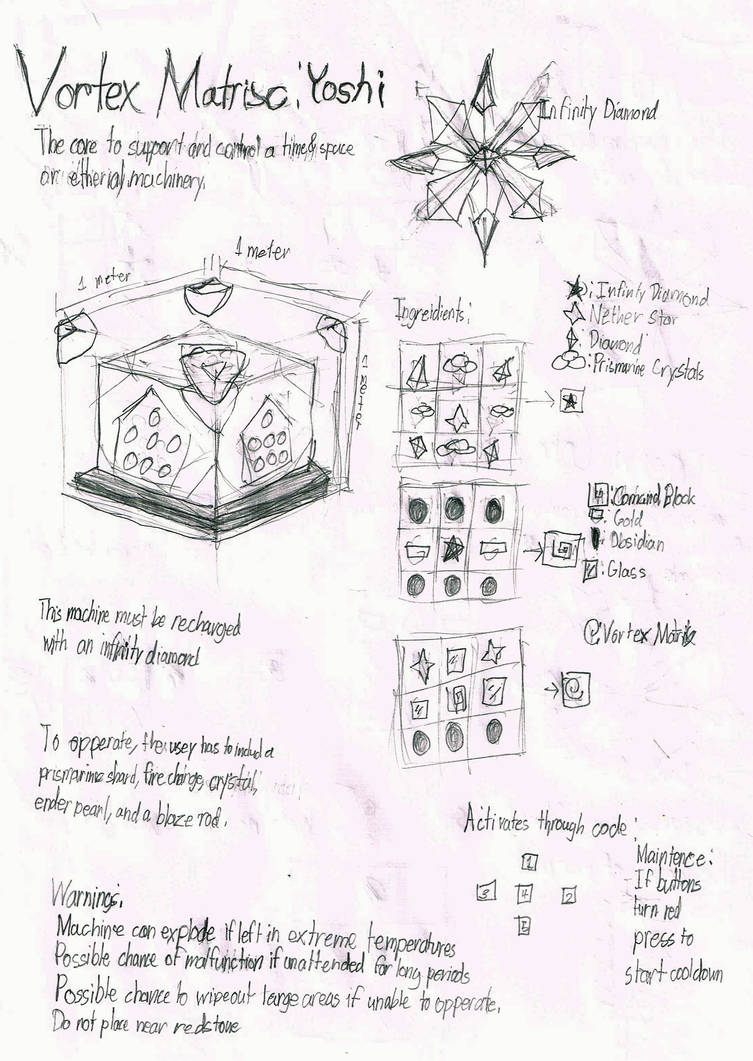 Vortex Matrisc: Yoshi
The core to support and control a time & space
or etherial machinery.
Infinity Diamond
1 meter
1 meter
1 meter
Ingreidients:
: Infinty Diamond
: Nether Star
: Diamond
: Prismarine Crystals
: Comand Block
: Gold
: Obsidian
: Glass
: Vortex Matrix
This machine must be recharged
with an infinity diamond
To opperate, the user has to includ a
prismarine shard, fire charge, crystal,
ender pearl, and a blaze rod.
Activates through code:
1
3 4 2
5
Maintence:
If buttons
turn red
press to
start cooldown
Warnings:
Machine can explode if left in extreme temperatures
Possible chance of malfunction if unattended for long periods
Possible chance to wipeout large areas if unable to opperate.
Do not place near redstone